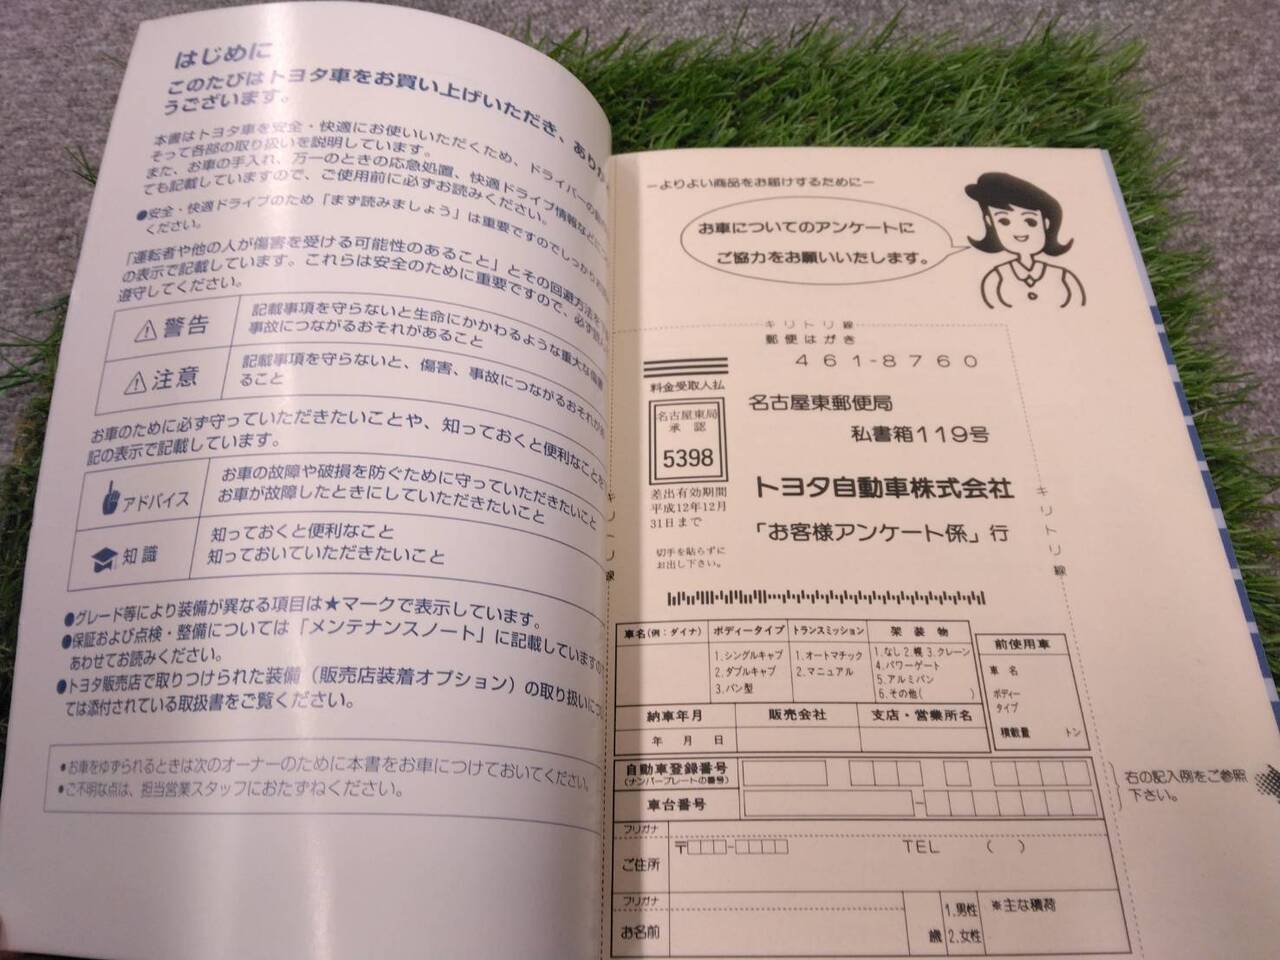 はじめに
このたびはトヨタ車をお買い上げいただき、あり
うございます。
本書はトヨタ車を安全・快適にお使いいただくため、ドライバーの
そって各部の取り扱いを説明しています。
また、お車の手入れ、万一のときの応急処置、快適ドライブ情報などに
ても記載していますので、ご使用前に必ずお読みください。
●安全・快適ドライブのため「まず読みましょう」は重要ですのでしっかり
ください。
「運転者や他の人が傷害を受ける可能性のあること」とその回避方法を
の表示で記載しています。これらは安全のために重要ですので、必ず読
遵守してください。
警告
記載事項を守らないと生命にかかわるような重大な傷害
事故につながるおそれがあること
注意
記載事項を守らないと、傷害、事故につながるおそれが
ること
お車のために必ず守っていただきたいことや、知っておくと便利なことを
記の表示で記載しています。
アドバイス
お車の故障や破損を防ぐために守っていただきたいこと
お車が故障したときにしていただきたいこと
知識
知っておくと便利なこと
知っておいていただきたいこと
●グレード等により装備が異なる項目は★マークで表示しています。
●保証および点検・整備については「メンテナンスノート」に記載しています
あわせてお読みください。
●トヨタ販売店で取りつけられた装備（販売店装着オプション）の取り扱いにつ
ては添付されている取扱書をご覧ください。
●お車をゆずられるときは次のオーナーのために本書をお車につけておいてください。
●ご不明な点は、担当営業スタッフにおたずねください。
−よりよい商品をお届けするために−
お車についてのアンケートに
ご協力をお願いいたします。
キリトリ線
郵便はがき
461-8760
料金受取人払
名古屋東局
承認
5398
差出有効期間
平成12年12月
31日まで
切手を貼らずに
お出し下さい。
名古屋東郵便局
私書箱119号
トヨタ自動車株式会社
「お客様アンケート係」行
キリトリ線
キリトリ線
車名(例:ダイナ) ボディータイプ トランスミッション 架装物
1.シングルキャブ
2.ダブルキャブ
3.バン型
1.オートマチック
2.マニュアル
1.なし 2.幌 3.クレーン
4.パワーゲート
5.アルミバン
6.その他( )
前使用車
車名
ボディー
タイプ
積載量 トン
納車年月 販売会社 支店・営業所名
年 月 日
自動車登録番号
(ナンバープレートの番号)
車台番号 −
右の記入例をご参照
下さい。
フリガナ
ご住所
〒 − TEL ( )
フリガナ
お名前
歳
1.男性
2.女性
※主な積荷